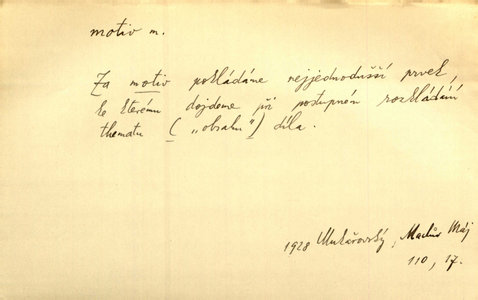 motiv m.
Za motiv pokládáme nejjednodušší prvek,
ke kterému dojdeme při postupném rozkládání
thematu ( „obsahu“) díla.
1928 Mukařovský, Máchův Máj
110, 17.